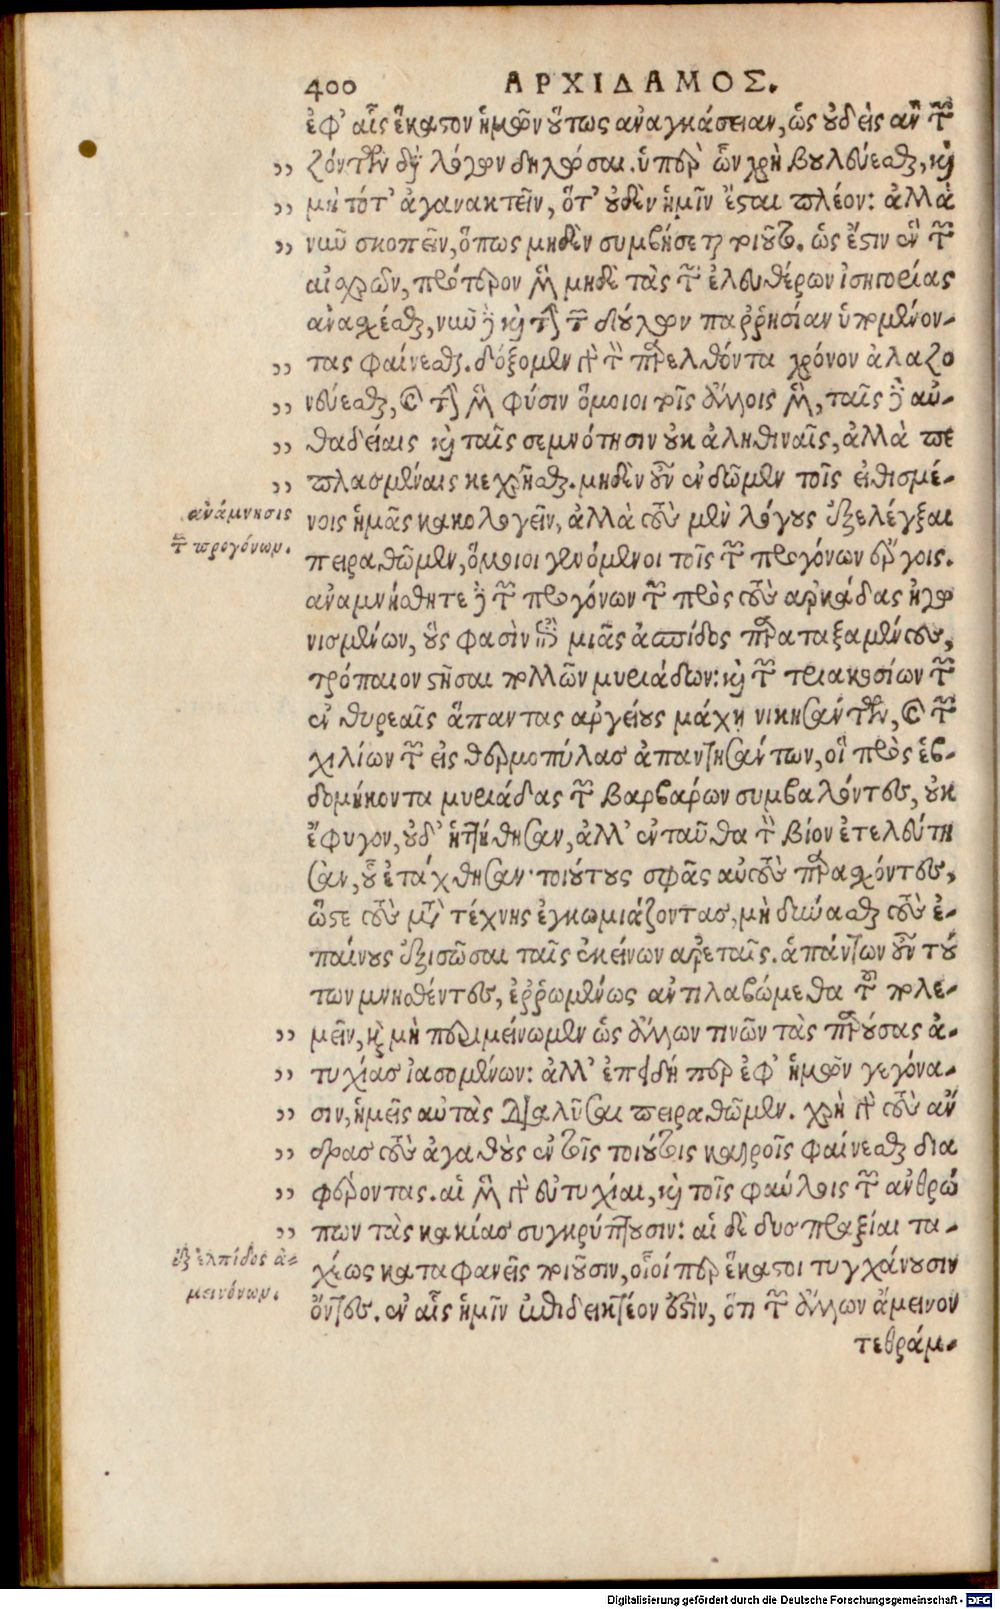 400 ΑΡΧΙΔΑΜΟΣ.
ἐφ' αἷς ἕκαστον ἡμῶν οὕτως ἀναγκάσειαν, ὡς οὐδεὶς ἂν τῶν
ζόντων τῷ λόγῳ δηλῶσαι. ὑπὲρ ὧν χρὴ βουλεύεσθαι, καὶ
μὴ τότ' ἀγανακτεῖν, ὅτ' οὐδὲν ἡμῖν ἔσται πλέον: ἀλλὰ
νῦν σκοπεῖν, ὅπως μηδὲν συμβήσεται τοιοῦτον. ὡς ἔστιν ἓν τῶν
αἰσχρῶν, πρότερον μὲν μηδὲ τὰς τῶν ἐλευθέρων ἰσηγορίας
ἀνασχέσθαι, νῦν δὲ καὶ τὴν τῶν δούλων παῤῥησίαν ὑπομένον-
τας φαίνεσθαι. δόξομεν γὰρ τὸν παρελθόντα χρόνον ἀλαζο
νεύεσθαι, καὶ τὴν μὲν φύσιν ὅμοιοι τοῖς ἄλλοις εἶναι, ταῖς δὲ αὐ-
θαδείαις καὶ ταῖς σεμνότησιν οὐκ ἀληθιναῖς, ἀλλὰ πε
πλασμέναις κεχρῆσθαι. μηδὲν οὖν ἐνδῶμεν τοῖς εἰθισμέ-
ἀνάμνησις
τῶν προγόνων.
νοις ἡμᾶς κακολογεῖν, ἀλλὰ τοὺς μὲν λόγους ἐξελέγξαι
πειραθῶμεν, ὅμοιοι γενόμενοι τοῖς τῶν προγόνων ἔργοις.
ἀναμνήσθητε δὲ τῶν προγόνων τῶν πρὸς τοὺς ἀρκάδας ἠγω
νισμένων, οὕς φασὶν ἐπὶ μιᾶς ἀσπίδος παραταξαμένους,
τρόπαιον στῆσαι πολλῶν μυριάδων: καὶ τῶν τριακοσίων τῶν
ἐν θυρεαῖς ἅπαντας ἀργείους μάχῃ νικησάντων, καὶ τῶν
χιλίων τῶν εἰς θερμοπύλας ἀπαντησάντων, οἳ πρὸς ἑβ-
δομήκοντα μυριάδας τῶν βαρβάρων συμβαλόντες, οὐκ
ἔφυγον, οὐδ' ἡττήθησαν, ἀλλ' ἐνταῦθα τὸν βίον ἐτελεύτη
σαν, οὗ ἐτάχθησαν· τοιούτους σφᾶς αὐτοὺς παρασχόντες,
ὥστε τοὺς μετὰ τέχνης ἐγκωμιάζοντας, μὴ δύνασθαι τοὺς ἐ-
παίνους ἐξισῶσαι ταῖς ἐκείνων ἀρεταῖς. ἁπάντων οὖν τού
των μνησθέντες, ἐῤῥωμένως ἀντιλαβώμεθα τοῦ πολέ-
μεῖν, καὶ μὴ περιμείνωμεν ὡς ἄλλων τινῶν τὰς παρούσας ἀ-
τυχίας ἰασομένων: ἀλλ' ἐπειδή περ ἐφ' ἡμῶν γεγόνα-
σιν, ἡμεῖς αὐτὰς διαλῦσαι πειραθῶμεν. χρὴ γὰρ τοὺς ἄν
δρας τοὺς ἀγαθοὺς ἐν τοῖς τοιούτοις καιροῖς φαίνεσθαι δια
φέροντας. αἱ μὲν γὰρ εὐτυχίαι, καὶ τοῖς φαύλοις τῶν ἀνθρώ
πων τὰς κακίας συγκρύπτουσιν: αἱ δὲ δυσπραξίαι τα-
ἐξ ἐλπίδος ἀ-
μεινόνων.
χέως καταφανεῖς ποιοῦσιν, οἷοί περ ἕκαστοι τυγχάνουσιν
ὄντες. ἐν αἷς ἡμῖν ἐπιδεικτέον ἐστὶν, ὅτι τῶν ἄλλων ἄμεινον
τεθράμ-
Digitalisierung gefördert durch die Deutsche Forschungsgemeinschaft - DFG